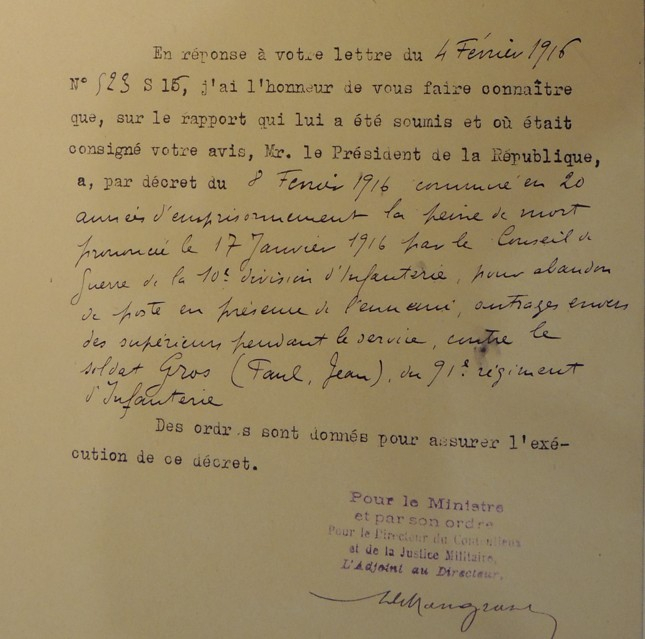 En réponse à votre lettre du 4 Février 1916
N° 523 S 15, j'ai l'honneur de vous faire connaître
que, sur le rapport qui lui a été soumis et où était
consigné votre avis, Mr. le Président de la République,
a, par décret du 8 Février 1916 commué en 20
années d'emprisonnement la peine de mort
prononcée le 17 Janvier 1916 par le Conseil de
Guerre de la 10e division d'Infanterie, pour abandon
de poste en présence de l'ennemi, outrages envers
des supérieurs pendant le service, contre le
soldat Gros (Paul, Jean), du 91e régiment
d'Infanterie
Des ordr s sont donnés pour assurer l'exé-
cution de ce décret.
Pour le Ministre
et par son ordre
Pour le Directeur du Contentieux
et de la Justice Militaire,
L'Adjoint au Directeur,